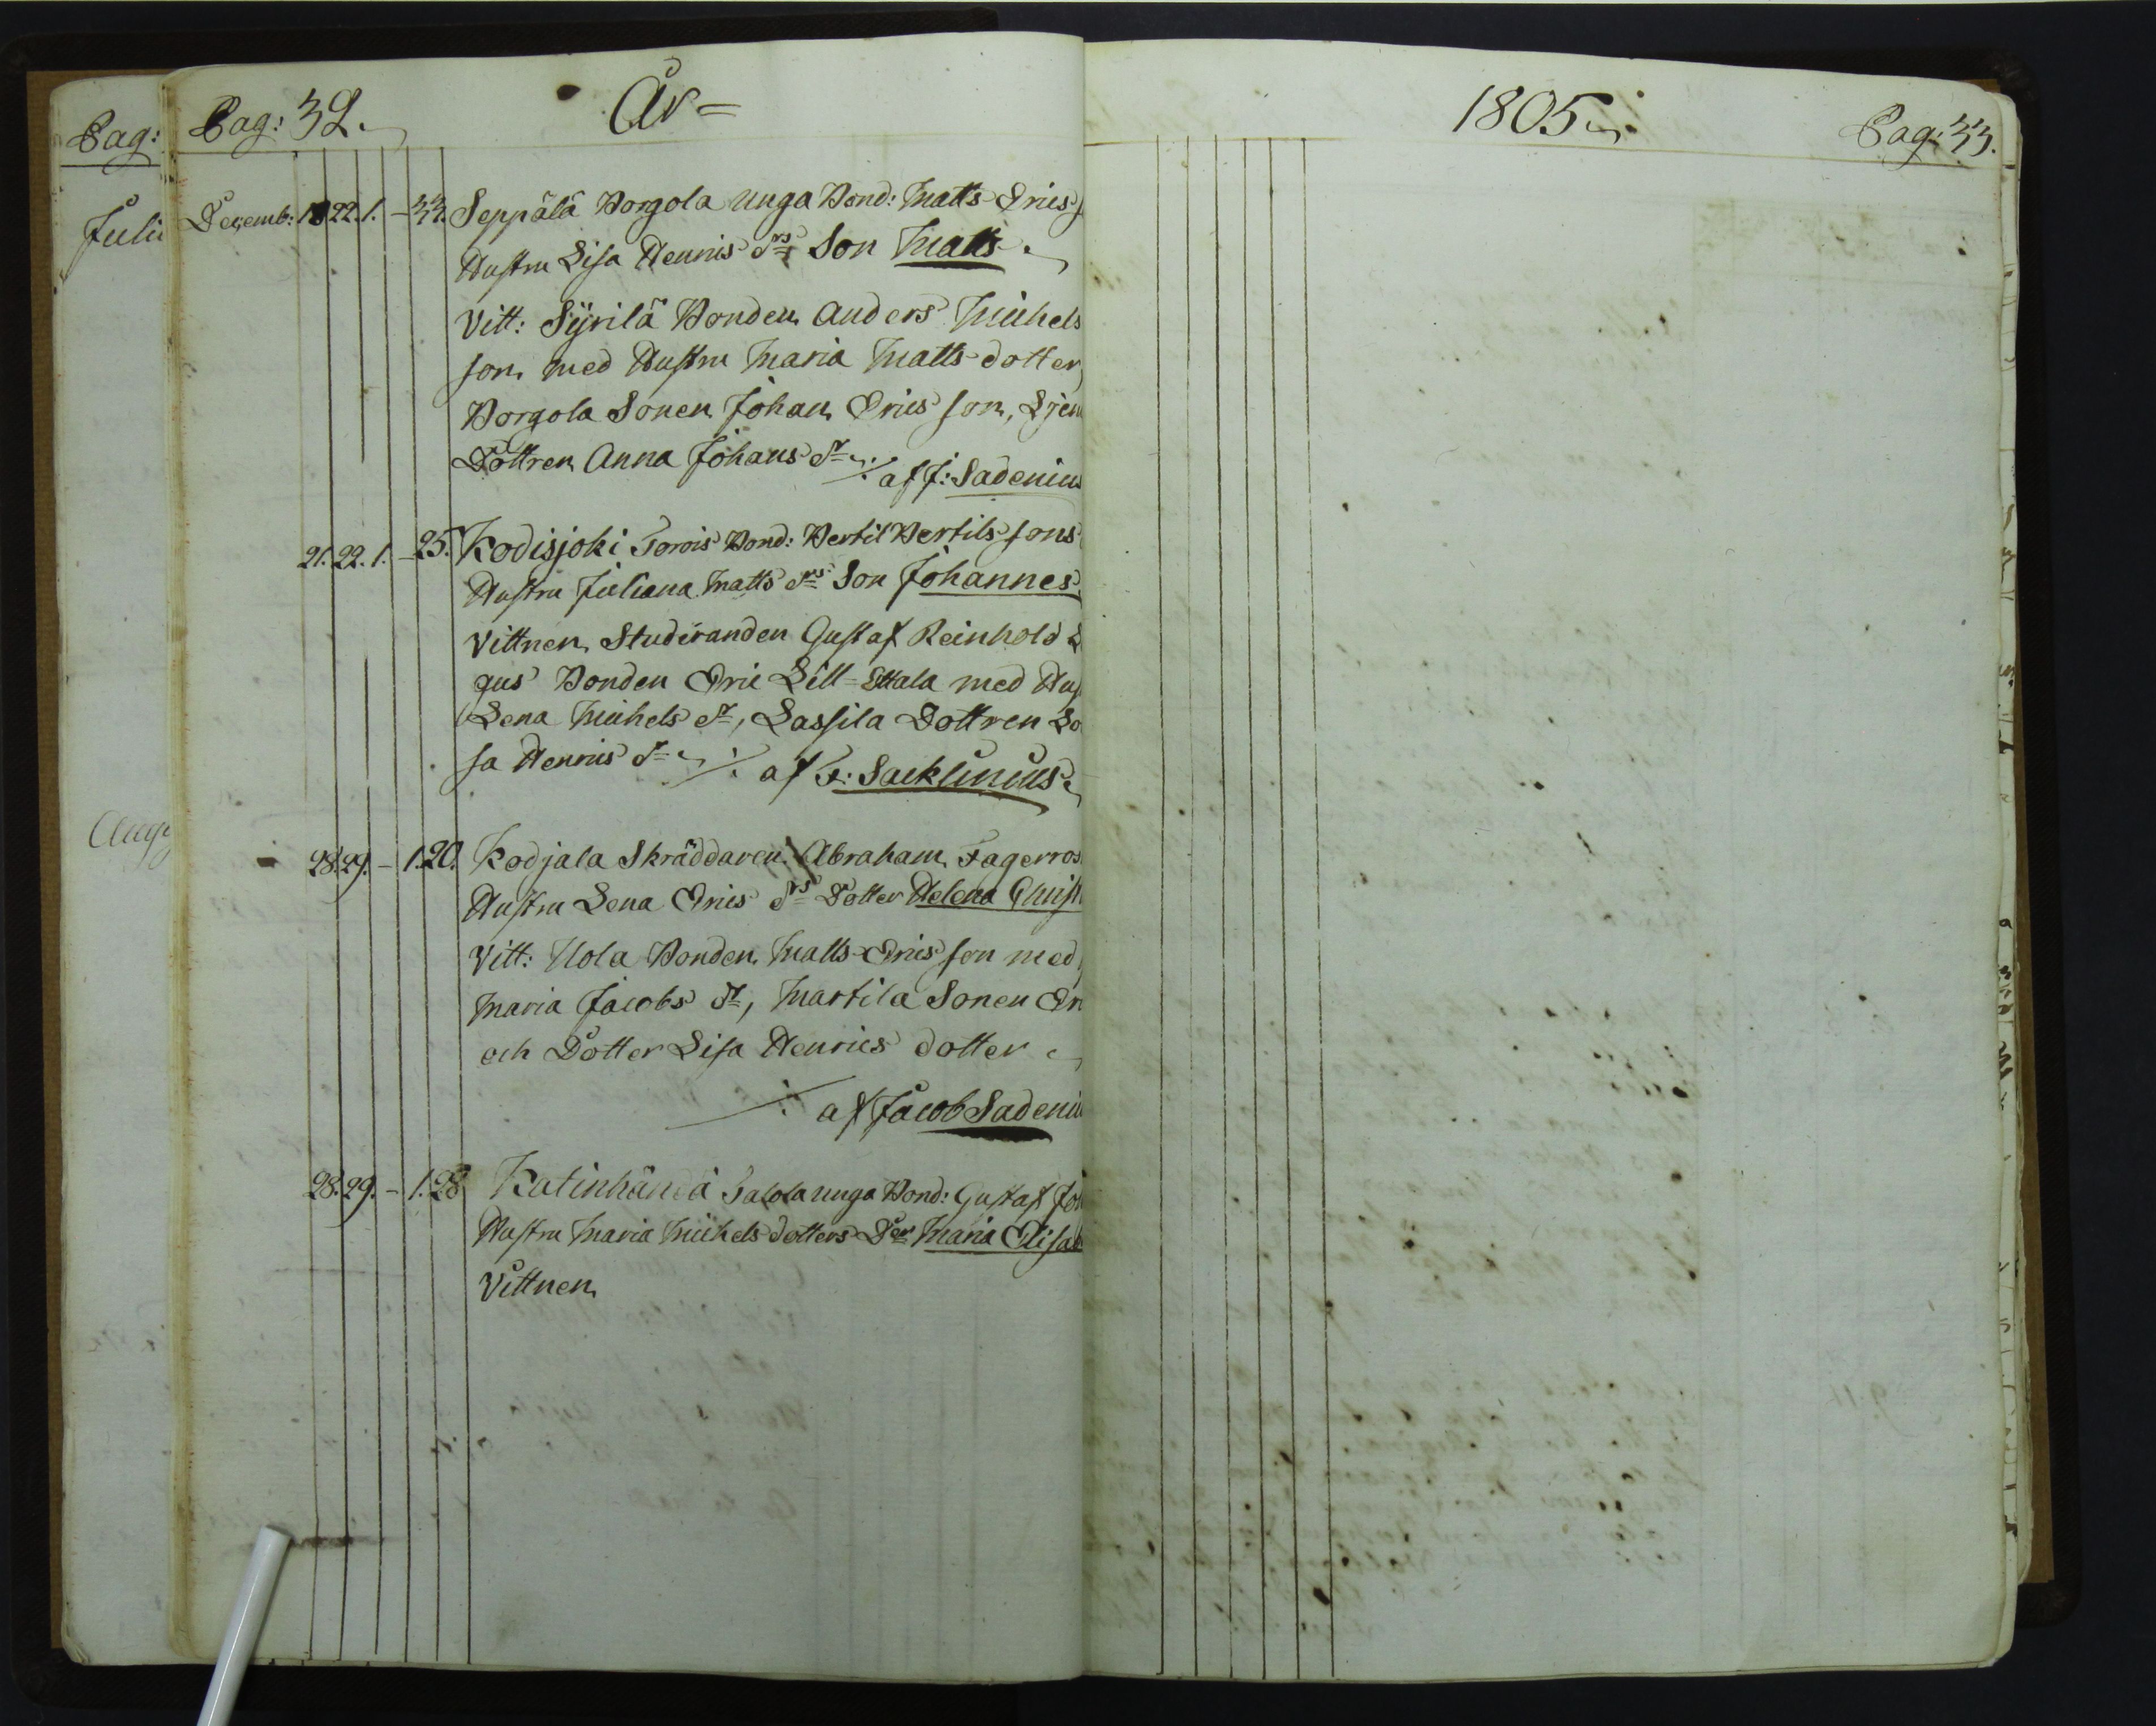 Pag: 32.
År=
1805
Pag: 33.
Pag:
Julii
Aug
Decemb: 18 22. 1. – 33. Seppälä Borgola unga Bond: Matts Erics
Hustru Lisa Henrics drs Son Matts.
Vitt: Syrilä Bonden Anders Michels
son med Hustru Maria Matts dotter,
Borgola Sonen Johan Erics son,
Dottren Anna Johans dr ./. af J: Sadenius
21. 22. 1. – 25. Kodisjoki Torois Bond: Bertil Bertils sons
Hustru Juliana Matts drs Son Johannes.
Vittnen Studeranden Gustaf Reinhold
gus Bonden Eric Lill-Ettala med Hus
Lena Michels dr, Lassila Dottren Lo
sa Henrics dr ./. af F: Sacklinius.
28. 29. – 1. 20. Kodjala Skräddaren Abraham Fagerros
Hustru Lena Erics drs Dotter Helena Christ
Vitt: Uola Bonden Matts Erics son med
Maria Jacobs dr, Martila Sonen Er
och Dotter Lisa Henrics dotter
./. af Jacob Sadeniu
28. 29. – 1. 28 Katinhändä Talola unga Bond: Gustaf Joh
Hustru Maria Michels dotters Der Maria Elisab
Vittnen